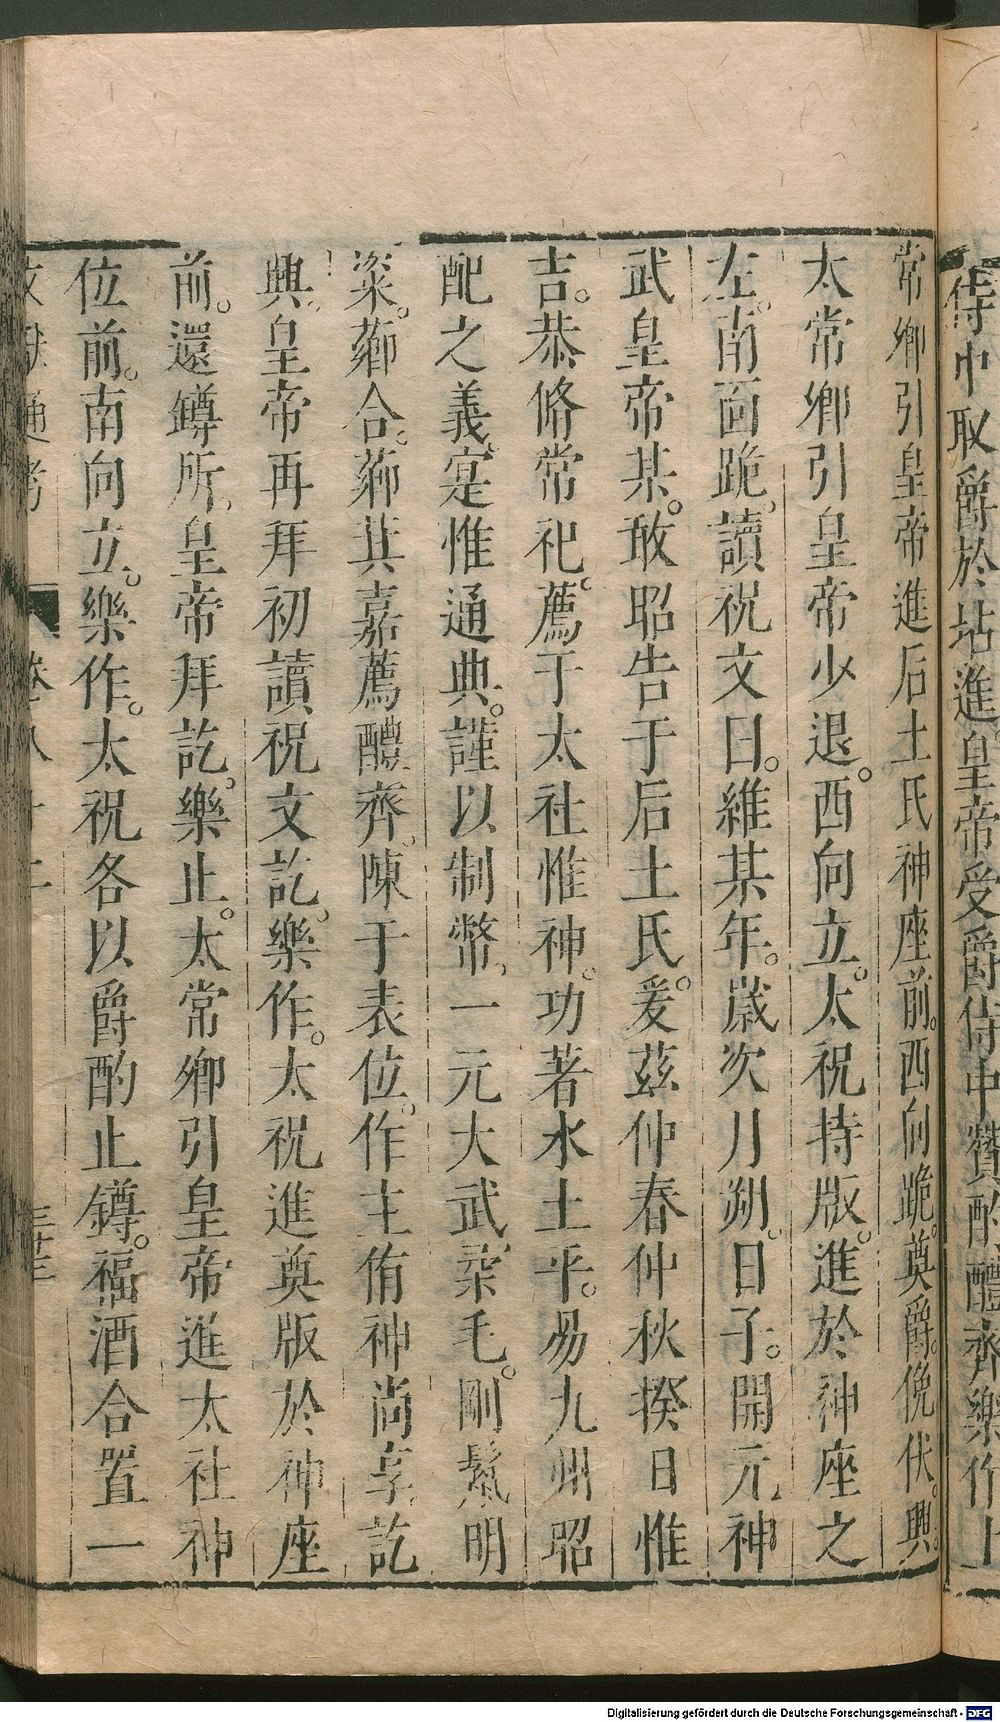 侍中取爵於坫進皇帝受爵侍中贊酌醴齊樂作
常卿引皇帝進后土氏神座前。西向跪。奠爵。俛伏。興。
太常卿引皇帝少退。西向立。太祝持版。進於神座之
左。南面跪。讀祝文曰。維某年。歲次月朔。日子。開元神
武皇帝某。敢昭告于后土氏。爰茲仲春仲秋揆日惟
吉。恭脩常祀。薦于太社惟神。功著水土平。易九州昭
配之義。寔惟通典。謹以制幣。一元大武。柔毛。剛鬣。明
粢。薌合。薌萁嘉薦醴齊。陳于表位。作主侑神尚享。訖
興。皇帝再拜初讀祝文訖。樂作。太祝進奠版於神座
前。還罇所。皇帝拜訖。樂止。太常卿引皇帝進太社神
位前。南向立。樂作。太祝各以爵酌止罇。福酒合置一
文獻通考 卷八十二 三十三
Digitalisierung gefördert durch die Deutsche Forschungsgemeinschaft - DFG